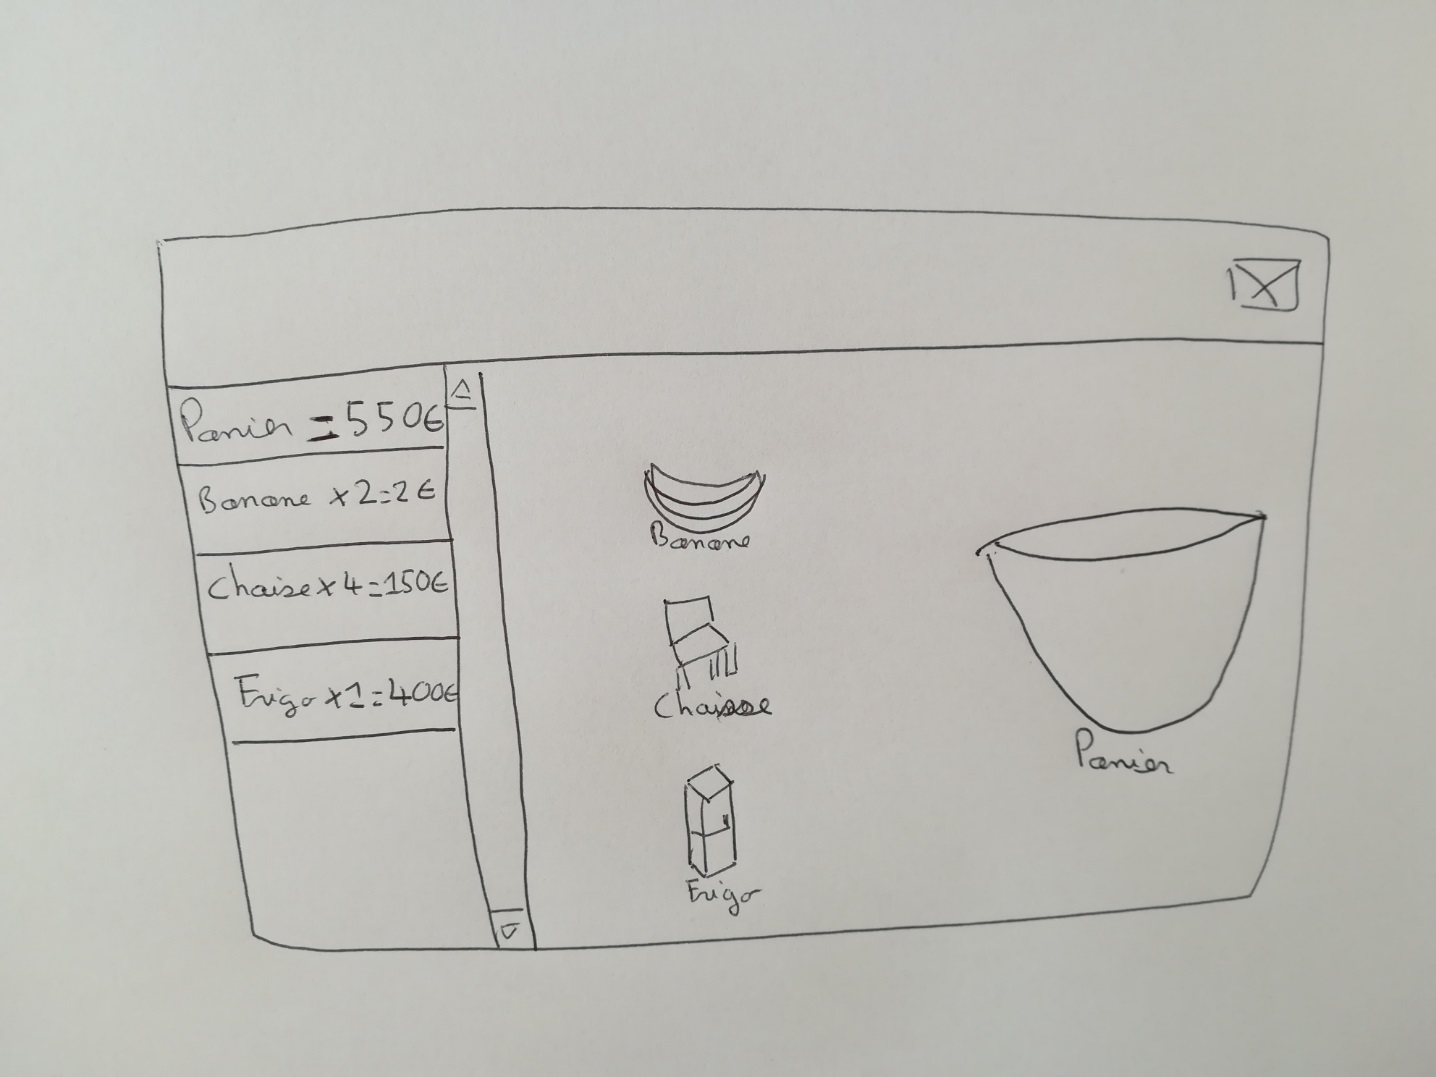 Panier = 550€
Banane x2=2€
Chaise x4=150€
Frigo x1=400€
Banane
Chaise
Frigo
Panier